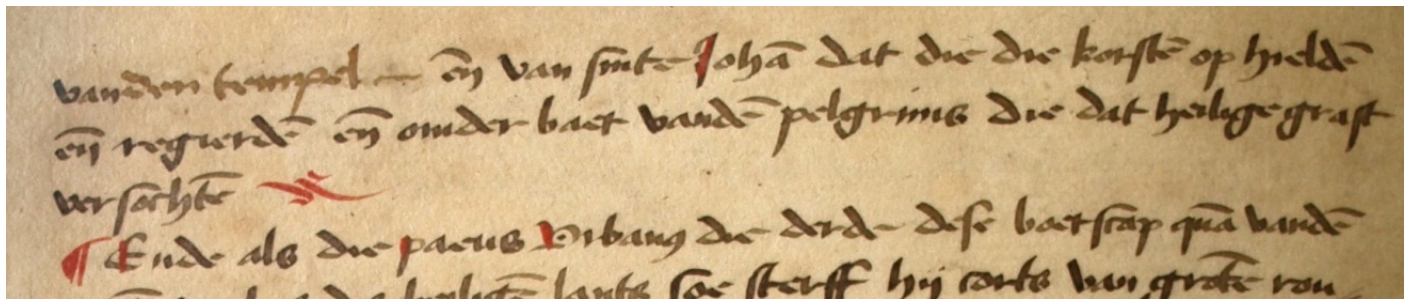 vanden tempel en̄ van sintē Johā dat die die korstē op hieldē
en̄ regierdē en̄ om der baet vandē pelgrims die dat heilige graft
versochtē
¶ Ende als die paeus Vrbanꝯ die derde dese boetscap quā vandē
heiligē lants soe sterff hij corts van grotē rou